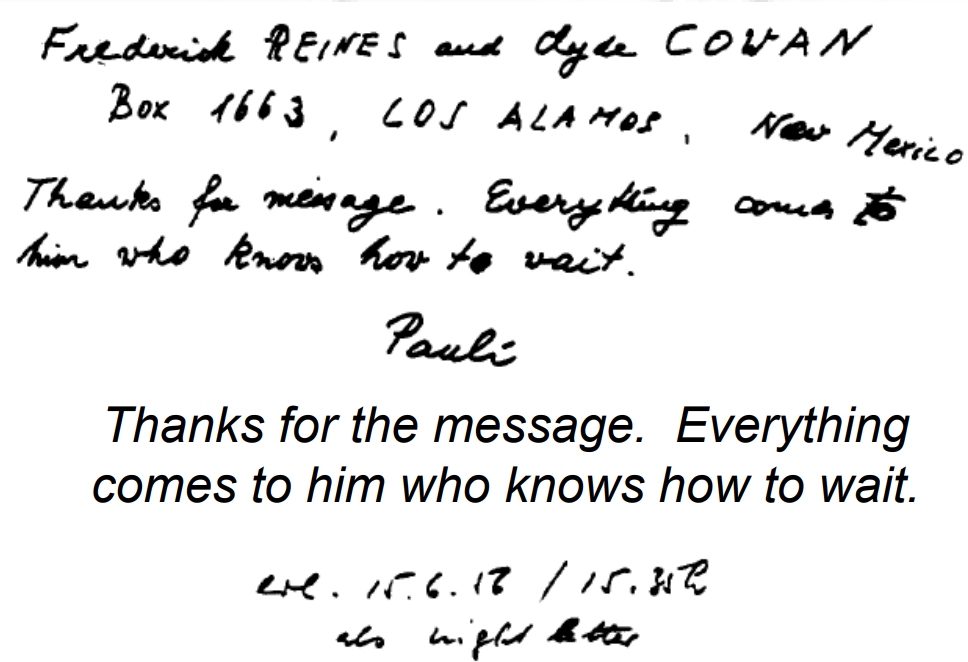 Frederick REINES and Clyde COWAN
Box 1663, LOS ALAMOS, New Mexico
Thanks for message. Everything comes to
him who knows how to wait.
Pauli
Thanks for the message. Everything
comes to him who knows how to wait.
15.6.
als night letter